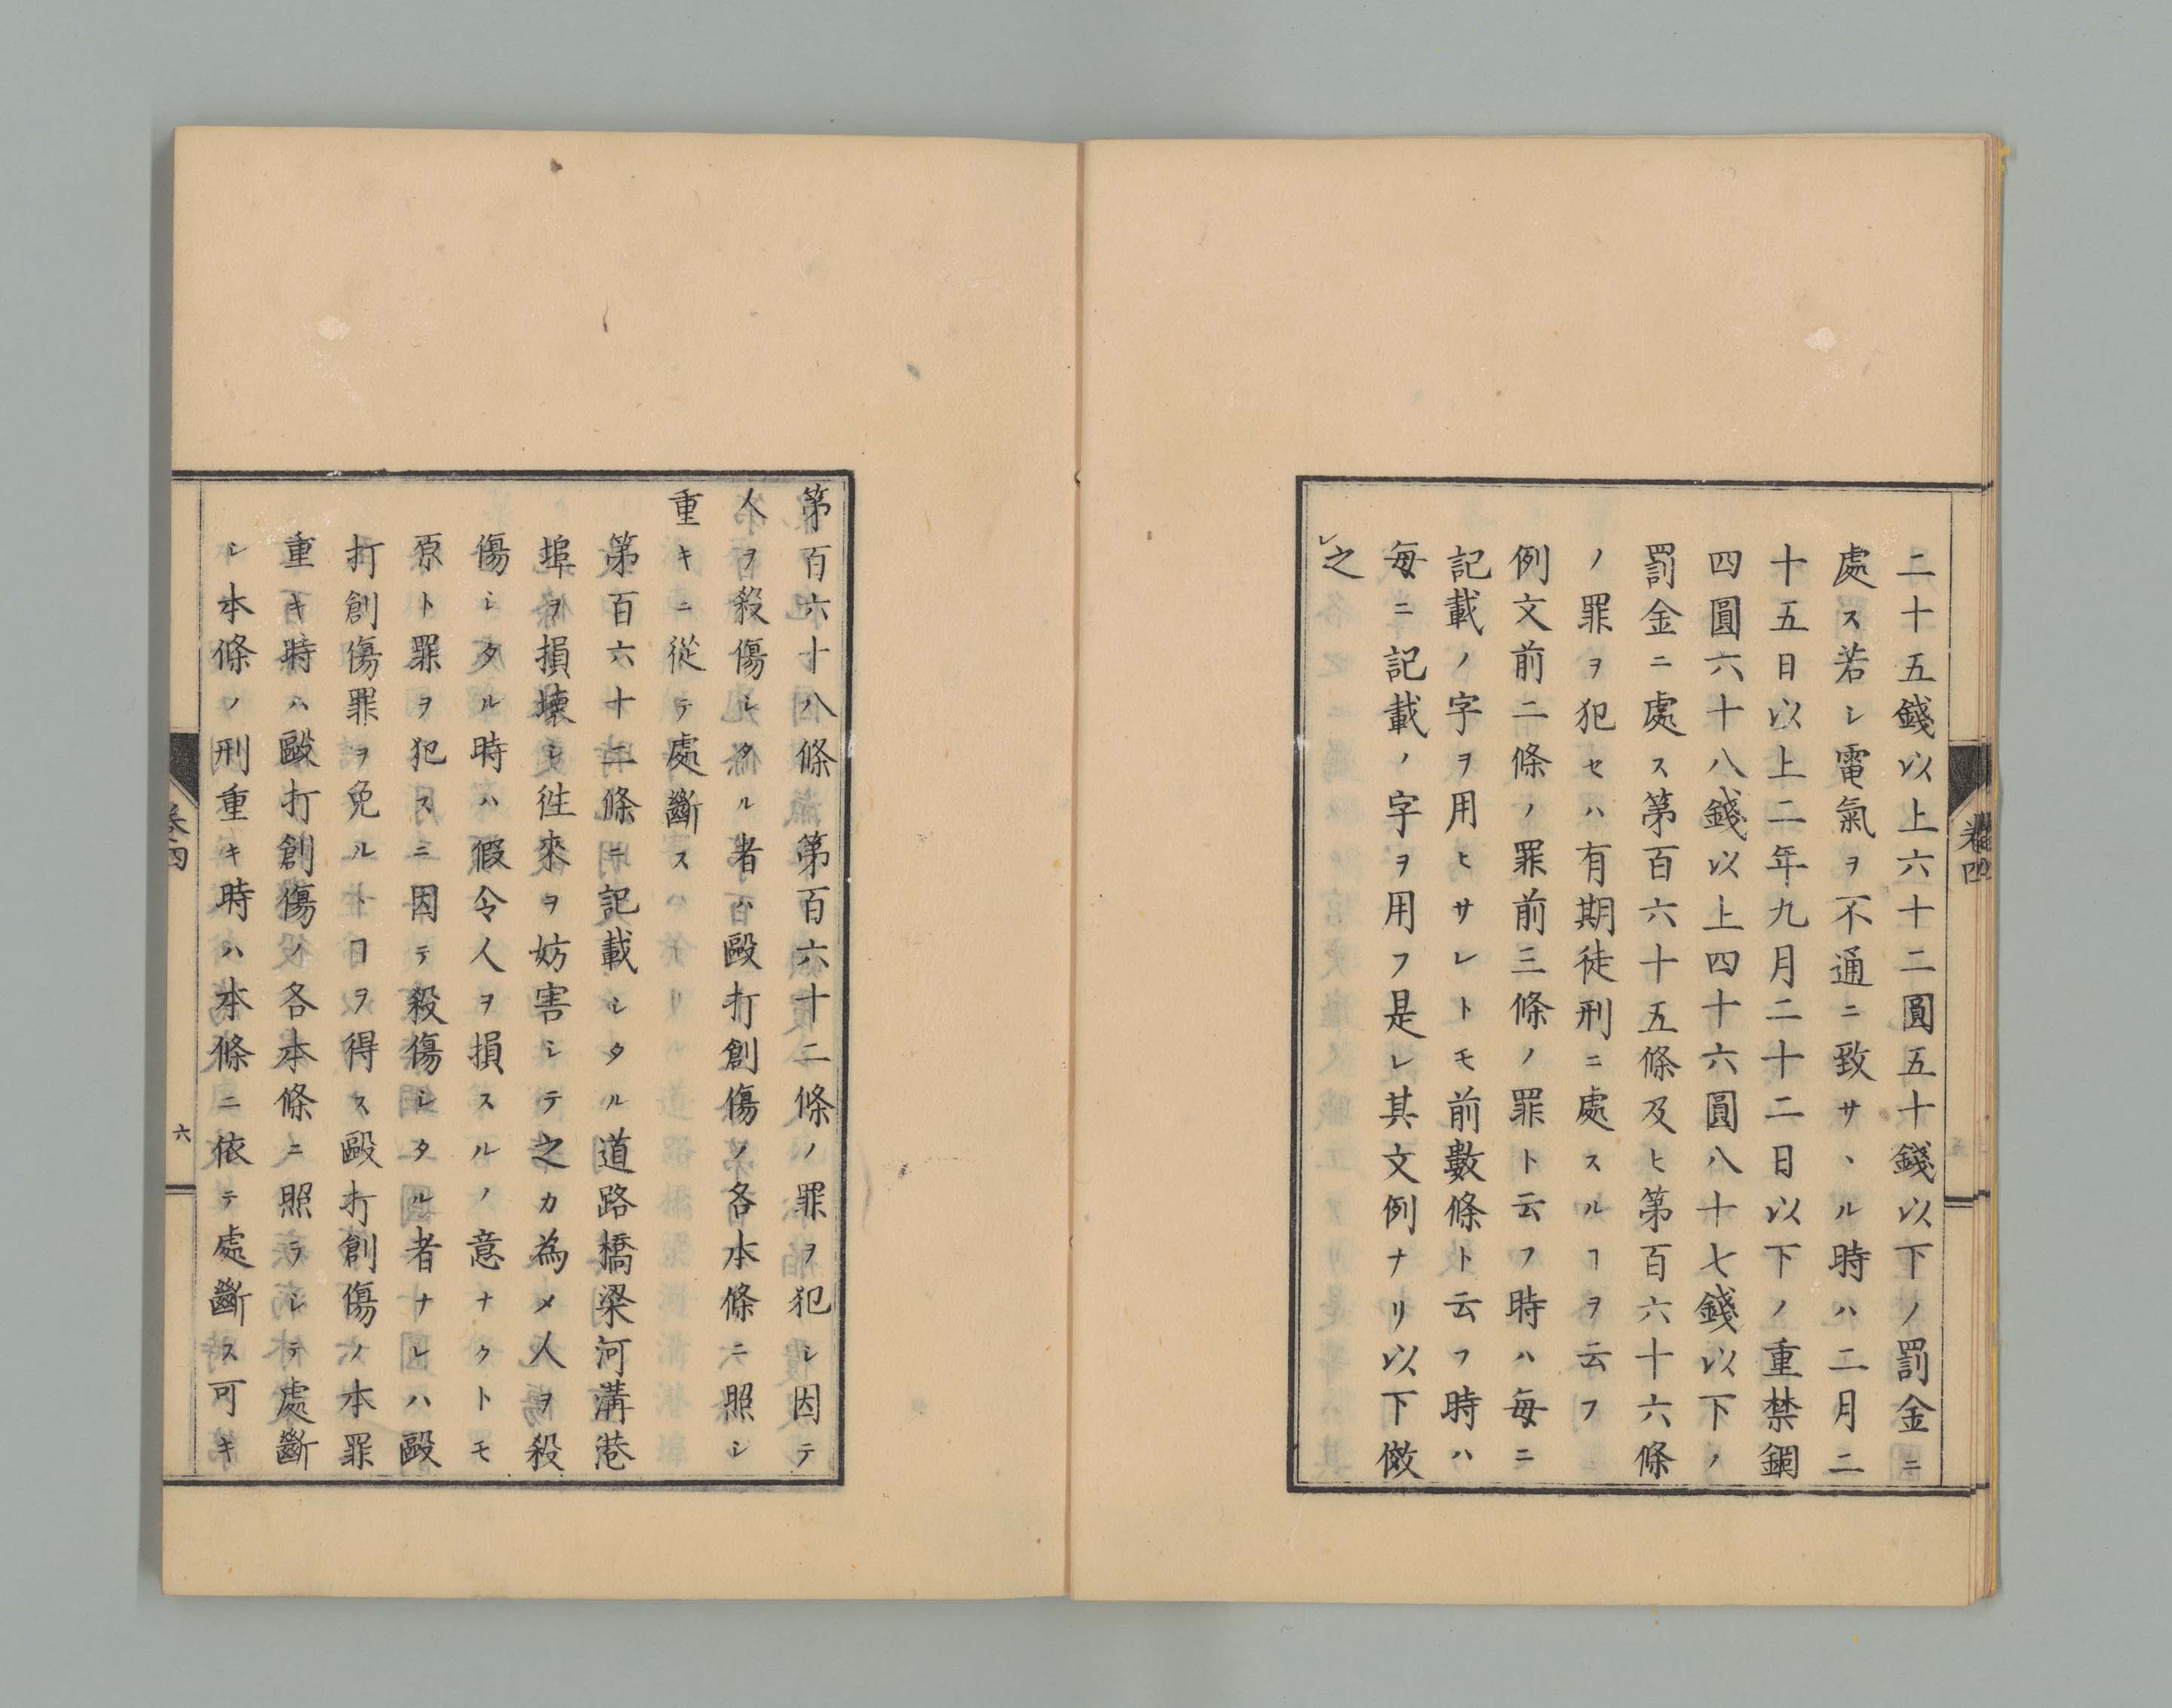 二十五錢以上六十二圓五十錢以下ノ罰金ニ
處ス若シ電氣ヲ不通ニ致サヽル時ハ二月二
十五日以上二年九月二十二日以下ノ重禁錮
四圓六十八錢以上四十六圓八十七錢以下ノ
罰金ニ處ス第百六十五條及ヒ第百六十六條
ノ罪ヲ犯セハ有期徒刑ニ處スルヿヲ云フ
例文前二條ノ罪前三條ノ罪ト云フ時ハ毎ニ
記載ノ字ヲ用ヒサレトモ前數條ト云フ時ハ
毎ニ記載ノ字ヲ用フ是レ其文例ナリ以下傚
之
卷四
第百六十八條 第百六十二條ノ罪ヲ犯シ因テ
人ヲ殺傷シタル者ハ毆打創傷ノ各本條ニ照シ
重キニ從テ處斷ス
第百六十二條ニ記載シタル道路橋梁河溝港
埠ヲ損壞シ徃來ヲ妨害シテ之カ為メ人ヲ殺
傷シタル時ハ假令人ヲ損スルノ意ナクトモ
原ト罪ヲ犯スニ因テ殺傷シタル者ナレハ毆
打創傷罪ヲ免ルヽヿヲ得ス毆打創傷ノ本罪
重キ時ハ毆打創傷ノ各本條ニ照ラシテ處斷
シ本條ノ刑重キ時ハ本條ニ依テ處斷ス可キ
卷四
六